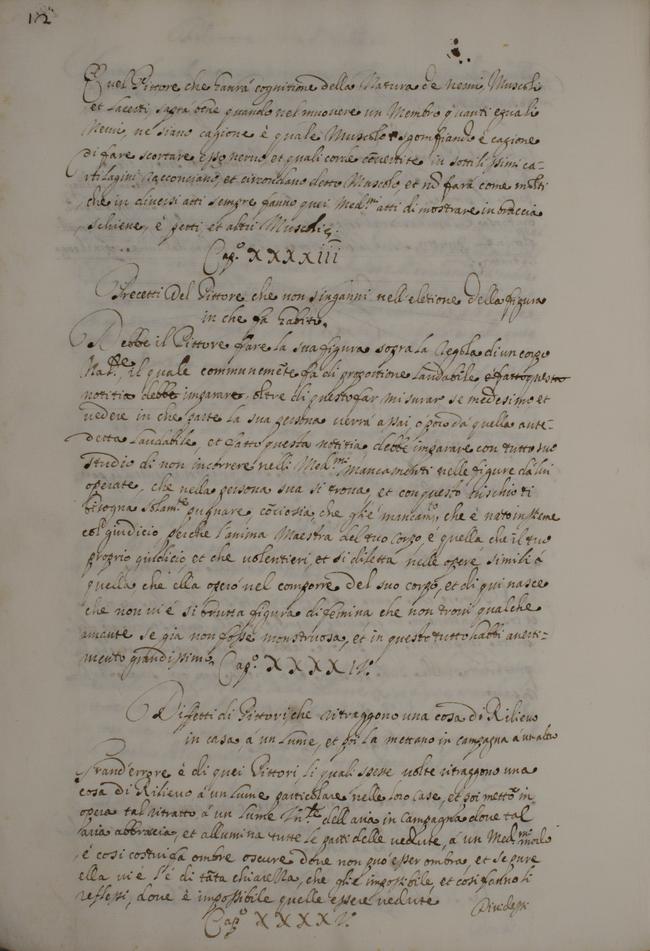 112
Quel Pittore che haurà cognitione della Natura de Nerui, Muscoli
et Lacerti, saprà bene quando nel muouere un Membro quanti equali
Nerui, ne siano cagione è quale Muscolo sgomfiando è cagione
di fare scortare esso neruo, et quali corde conuertite in sottilissimi ca-
rtilagini racconciano, et circondano detto Muscolo, et nõ farà come molti
che in diuersi atti sempre fanno quei Med.mi atti di mostrare in braccia
schiene, è petti, et altri Muscoli.
Cap.o XXXXiii
Precetti del Pittore che non s'inganni nell'eletione della figura
in che fa habito.
Debbe il Pittore fare la sua figura sopra la Regola di un corpo
Nat.le, il quale communemēte sia di proportione laudabile
notitia debbe imparare oltre di questo far misurar se medesimo et
uedere in che parte la sua persona uerrà assai, o poco da quella ante-
detta laudabile et fatto questa notitia debbe imparare con tutto suo
studio di non incorrere nelli Med.mi mancamenti nelle figure da lui
operate, che nella persona sua si troua, et con questo
bisogna solam.te pugnare conciosia, che gl'è mancam.to, che è nato insieme
col giudicio perche l'anima Maestra del tuo corpo è quella che il tuo
proprio giudicio et che uolentieri et si diletta nelle opere simili à
quella che ella operò nel comporre del suo corpo, et di qui nasce
che non ui è si brutta figura di femina che non troui qualche
amante se già non fosse monstruosa, et in questo tutto habbi auerti-
mento grandissimo. Cap.o XXXXIV.
Diffetti di Pittori che ritraggono una cosa di Rilieuo
in casa à un lume, et poi la mettano in campagna à un altro
Grand'errore è di quei Pittori li quali spesse uolte ritraggono una
cosa di Rilieuo à un lume particolare nelle loro case, et poi mettõ in
opera tal ritratto à un lume dell'aria in Campagna doue tal
aria abbraccia, et allumina tutte le parti delle uedute, à un Med.mo modo
è cosi costui fa ombre oscure doue non può esser ombra, et se pure
ella ui è l'è di tãta chiarezza, che gliè impossibile, et cosi fanno li
reflessi, doue è impossibile quelle essere uedute
Cap.o XXXXV.